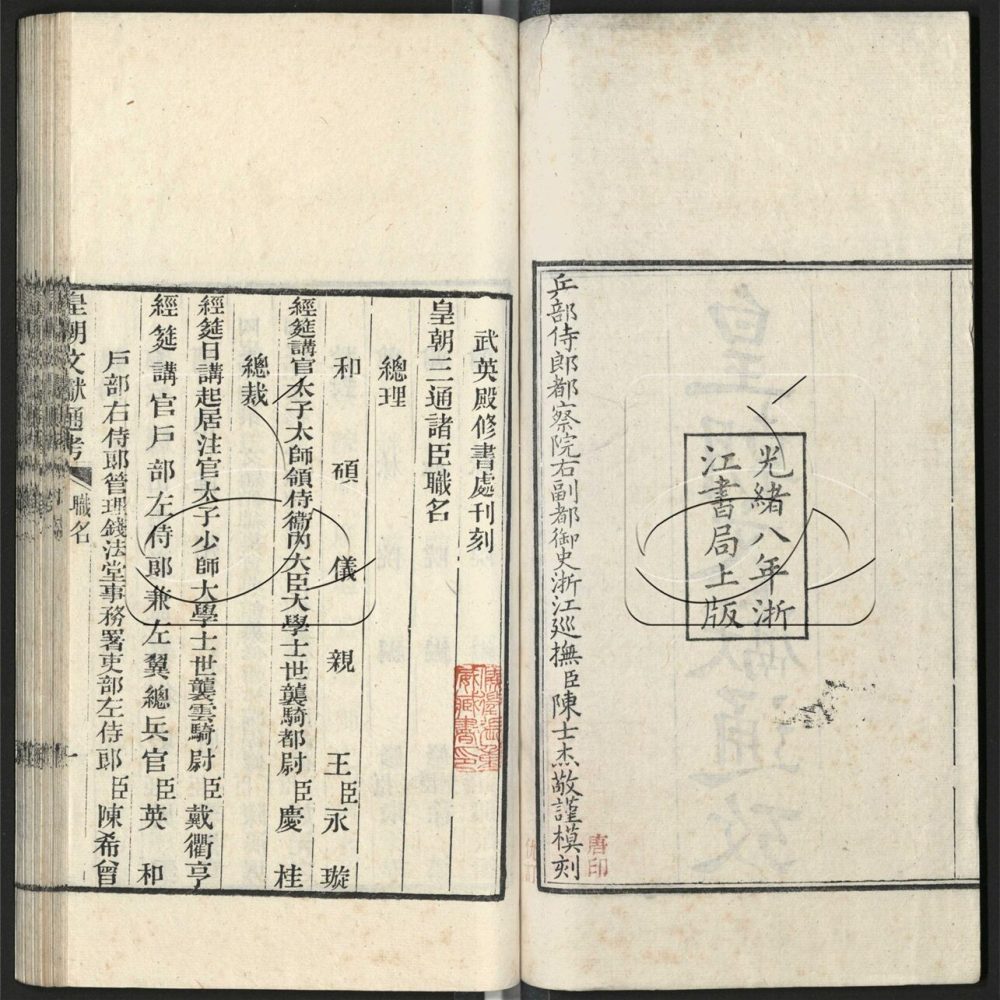 光緒八年浙
江書局上版
兵部侍郎都察院右副都御史浙江巡撫臣陳士杰敬謹模刻
唐印
武英殿修書處刊刻
皇朝三通諸臣職名
總理
和碩儀親王臣永璇
經筵講官太子太師領侍衛內大臣大學士世襲騎都尉臣慶桂
總裁
經筵日講起居注官太子少師大學士世襲雲騎尉臣戴衢亨
經筵講官戶部左侍郎兼左翼總兵官臣英和
戶部右侍郎管理錢法堂事務署吏部左侍郎臣陳希曾
皇朝文獻通考
職名
一